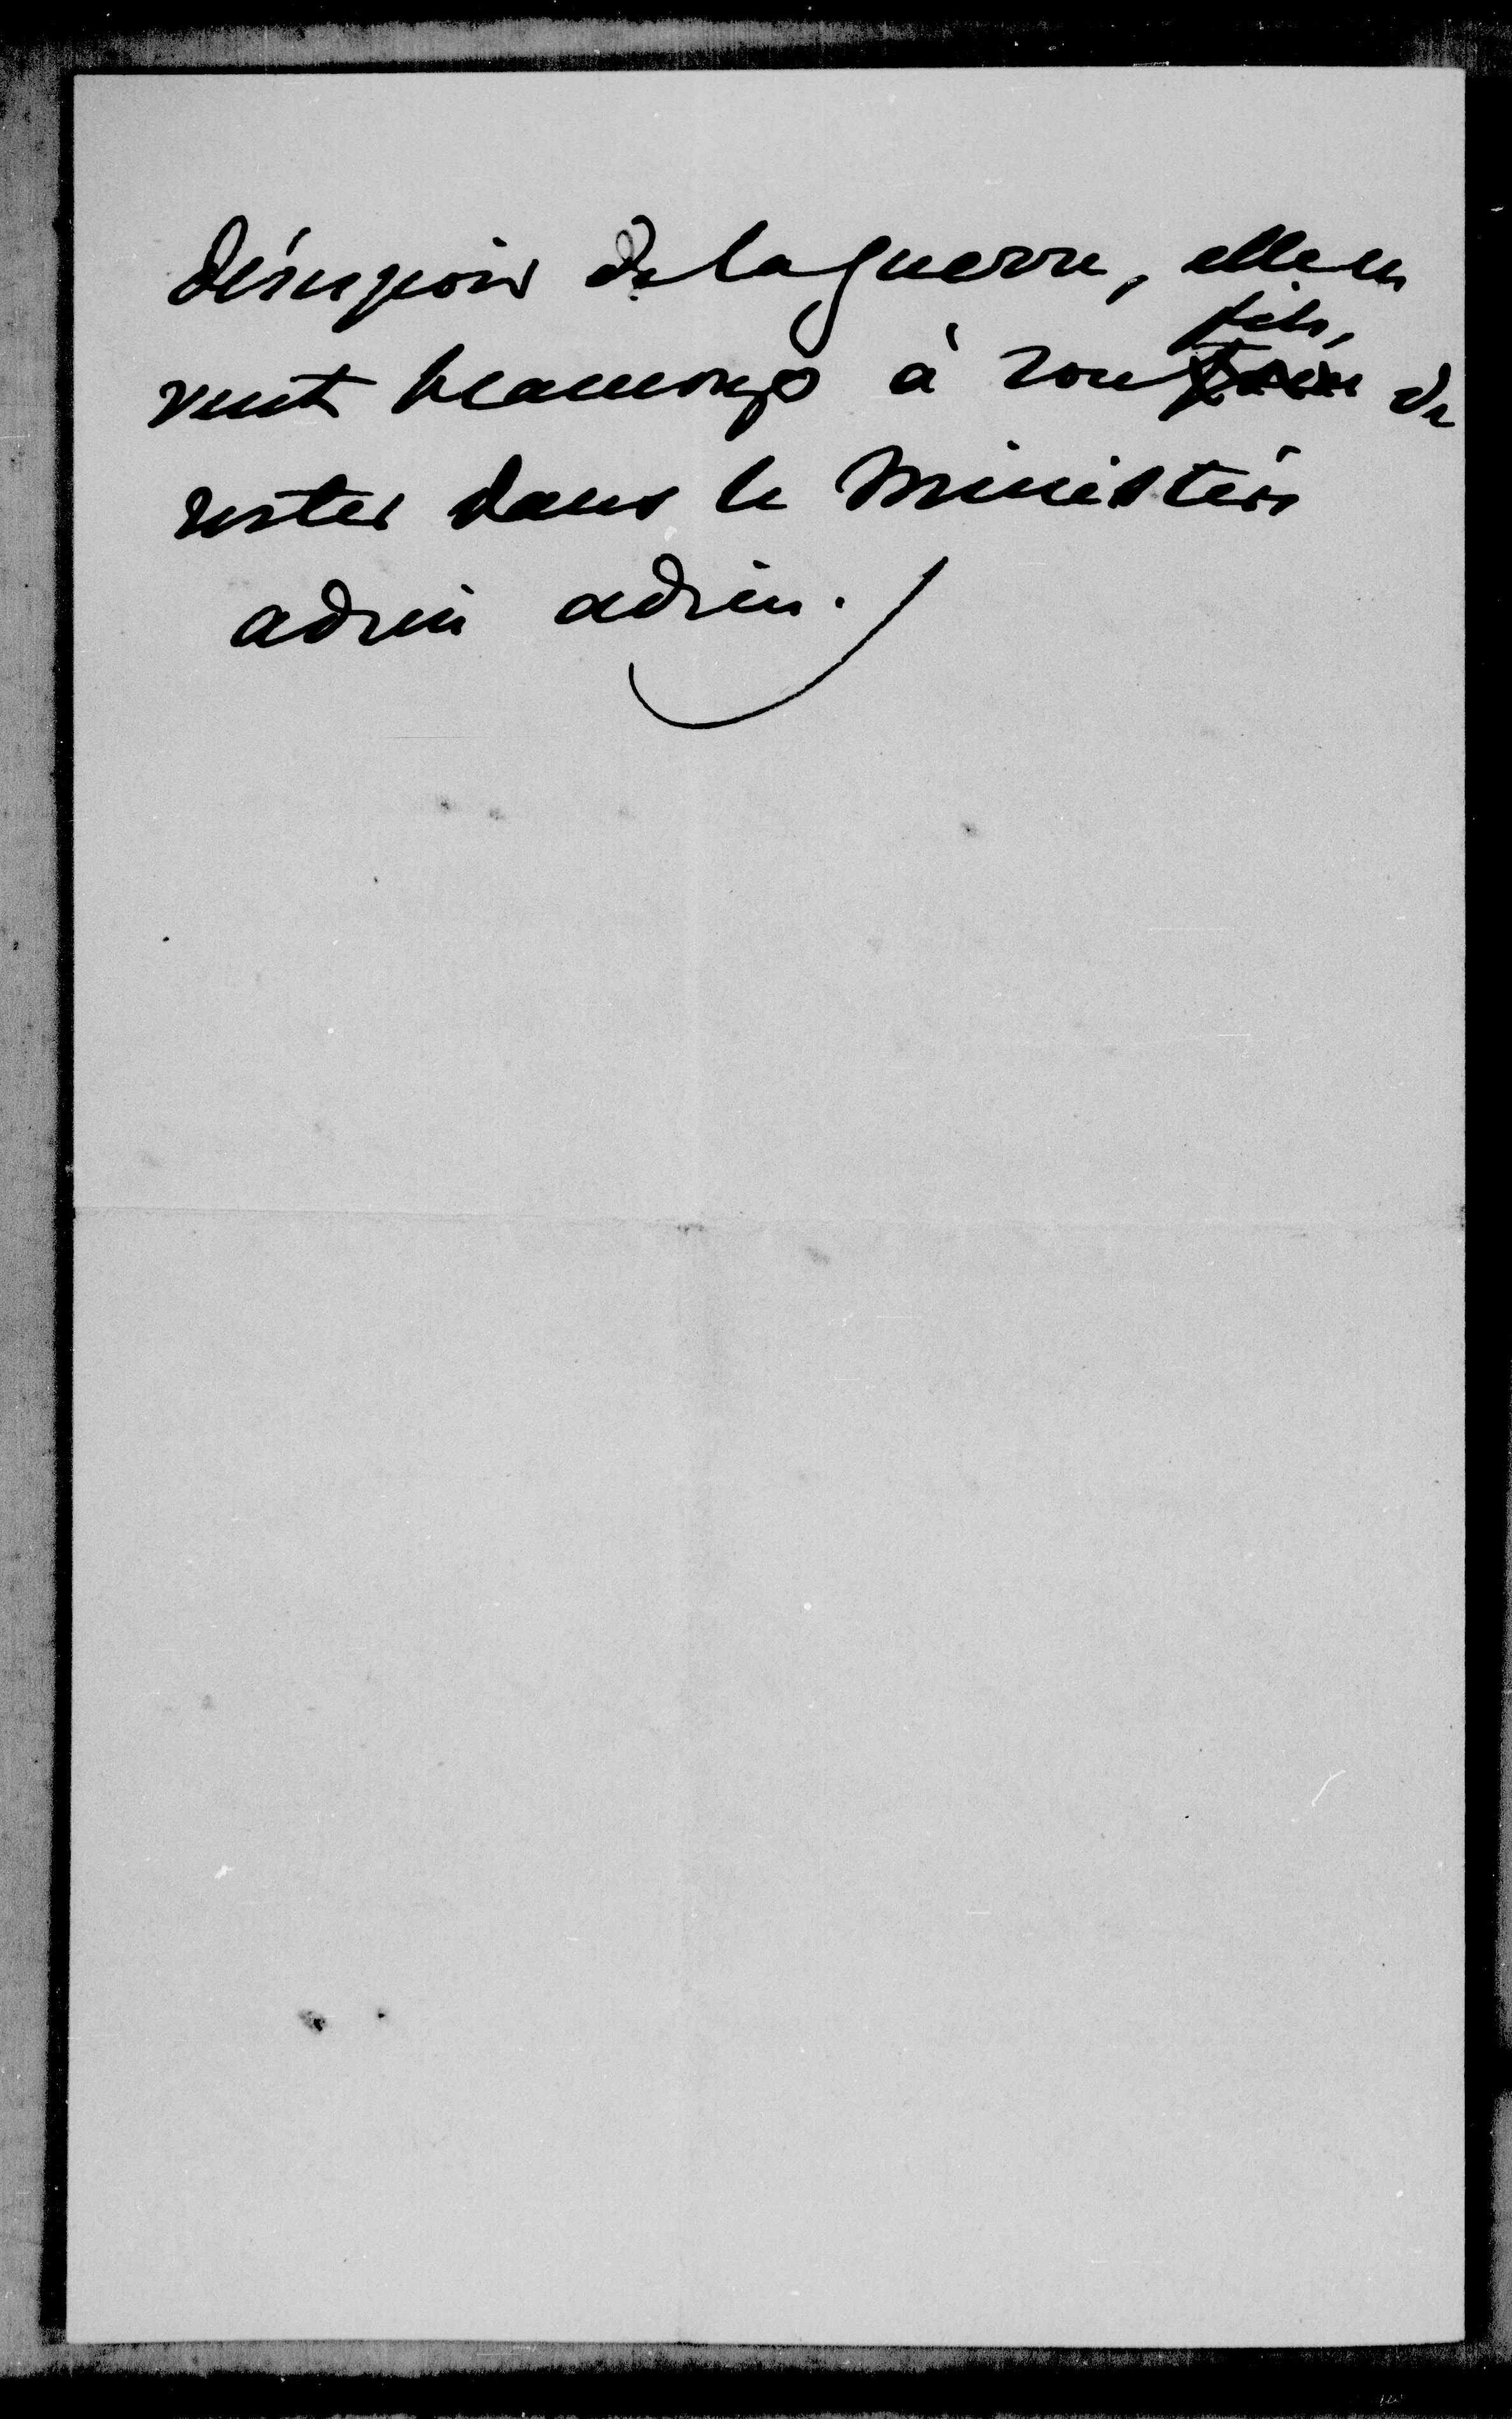 désespoir de la guerre, elle en
veut beaucoup à son fils, de
rester dans le Ministère
adieu adieu.